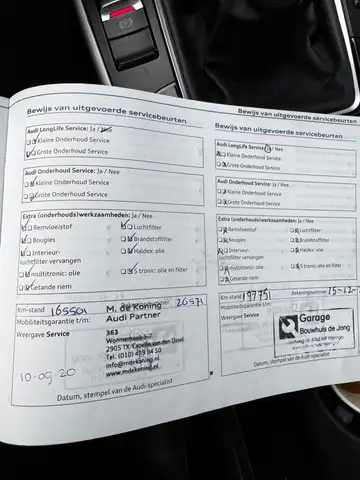 Bewijs van uitgevoerde servicebeurten
Audi LongLife Service: Ja / Nee
Kleine Onderhoud Service
Grote Onderhoud Service
Audi Onderhoud Service: Ja / Nee
Kleine Onderhoud Service
Grote Onderhoud Service
Extra (onderhouds)werkzaamheden: Ja / Nee
Remvloeistof Luchtfilter
Bougies Brandstoffilter
Interieur- Haldex: olie
luchtfilter vervangen
multitronic: olie S tronic: olie en filter
Getande riem
Km-stand 165501 26571
Mobiliteitsgarantie t/m: M. de Koning
Audi Partner
Weergave Service 363
Wormerhoek 5-7
2905 TX Capelle a/d IJssel
Tel. (010) 459 94 50
info@mdekoning.nl
www.mdekoning.nl
10-09 20
Datum, stempel van de Audi-specialist
Bewijs van uitgevoerde servicebeurten
Bewijs van uitgevoerde servicebeurten
Audi LongLife Service: Ja / Nee
Kleine Onderhoud Service
Grote Onderhoud Service
Audi Onderhoud Service: Ja / Nee
Kleine Onderhoud Service
Grote Onderhoud Service
Extra (onderhouds)werkzaamheden: Ja / Nee
Remvloeistof Luchtfilter
Bougies Brandstoffilter
Interieur- Haldex: olie
luchtfilter vervangen
multitronic: olie S tronic: olie en filter
Getande riem
Km-stand 197751 Rekeningnummer 15-12-
Mobiliteitsgarantie t/m:
Weergave Service
Garage
Bouwhuis de Jong
Datum, stempel van de Audi-specialist